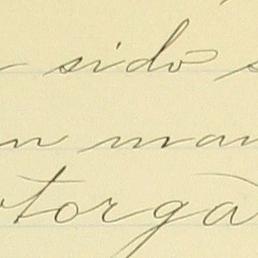 sido s
n man
torga